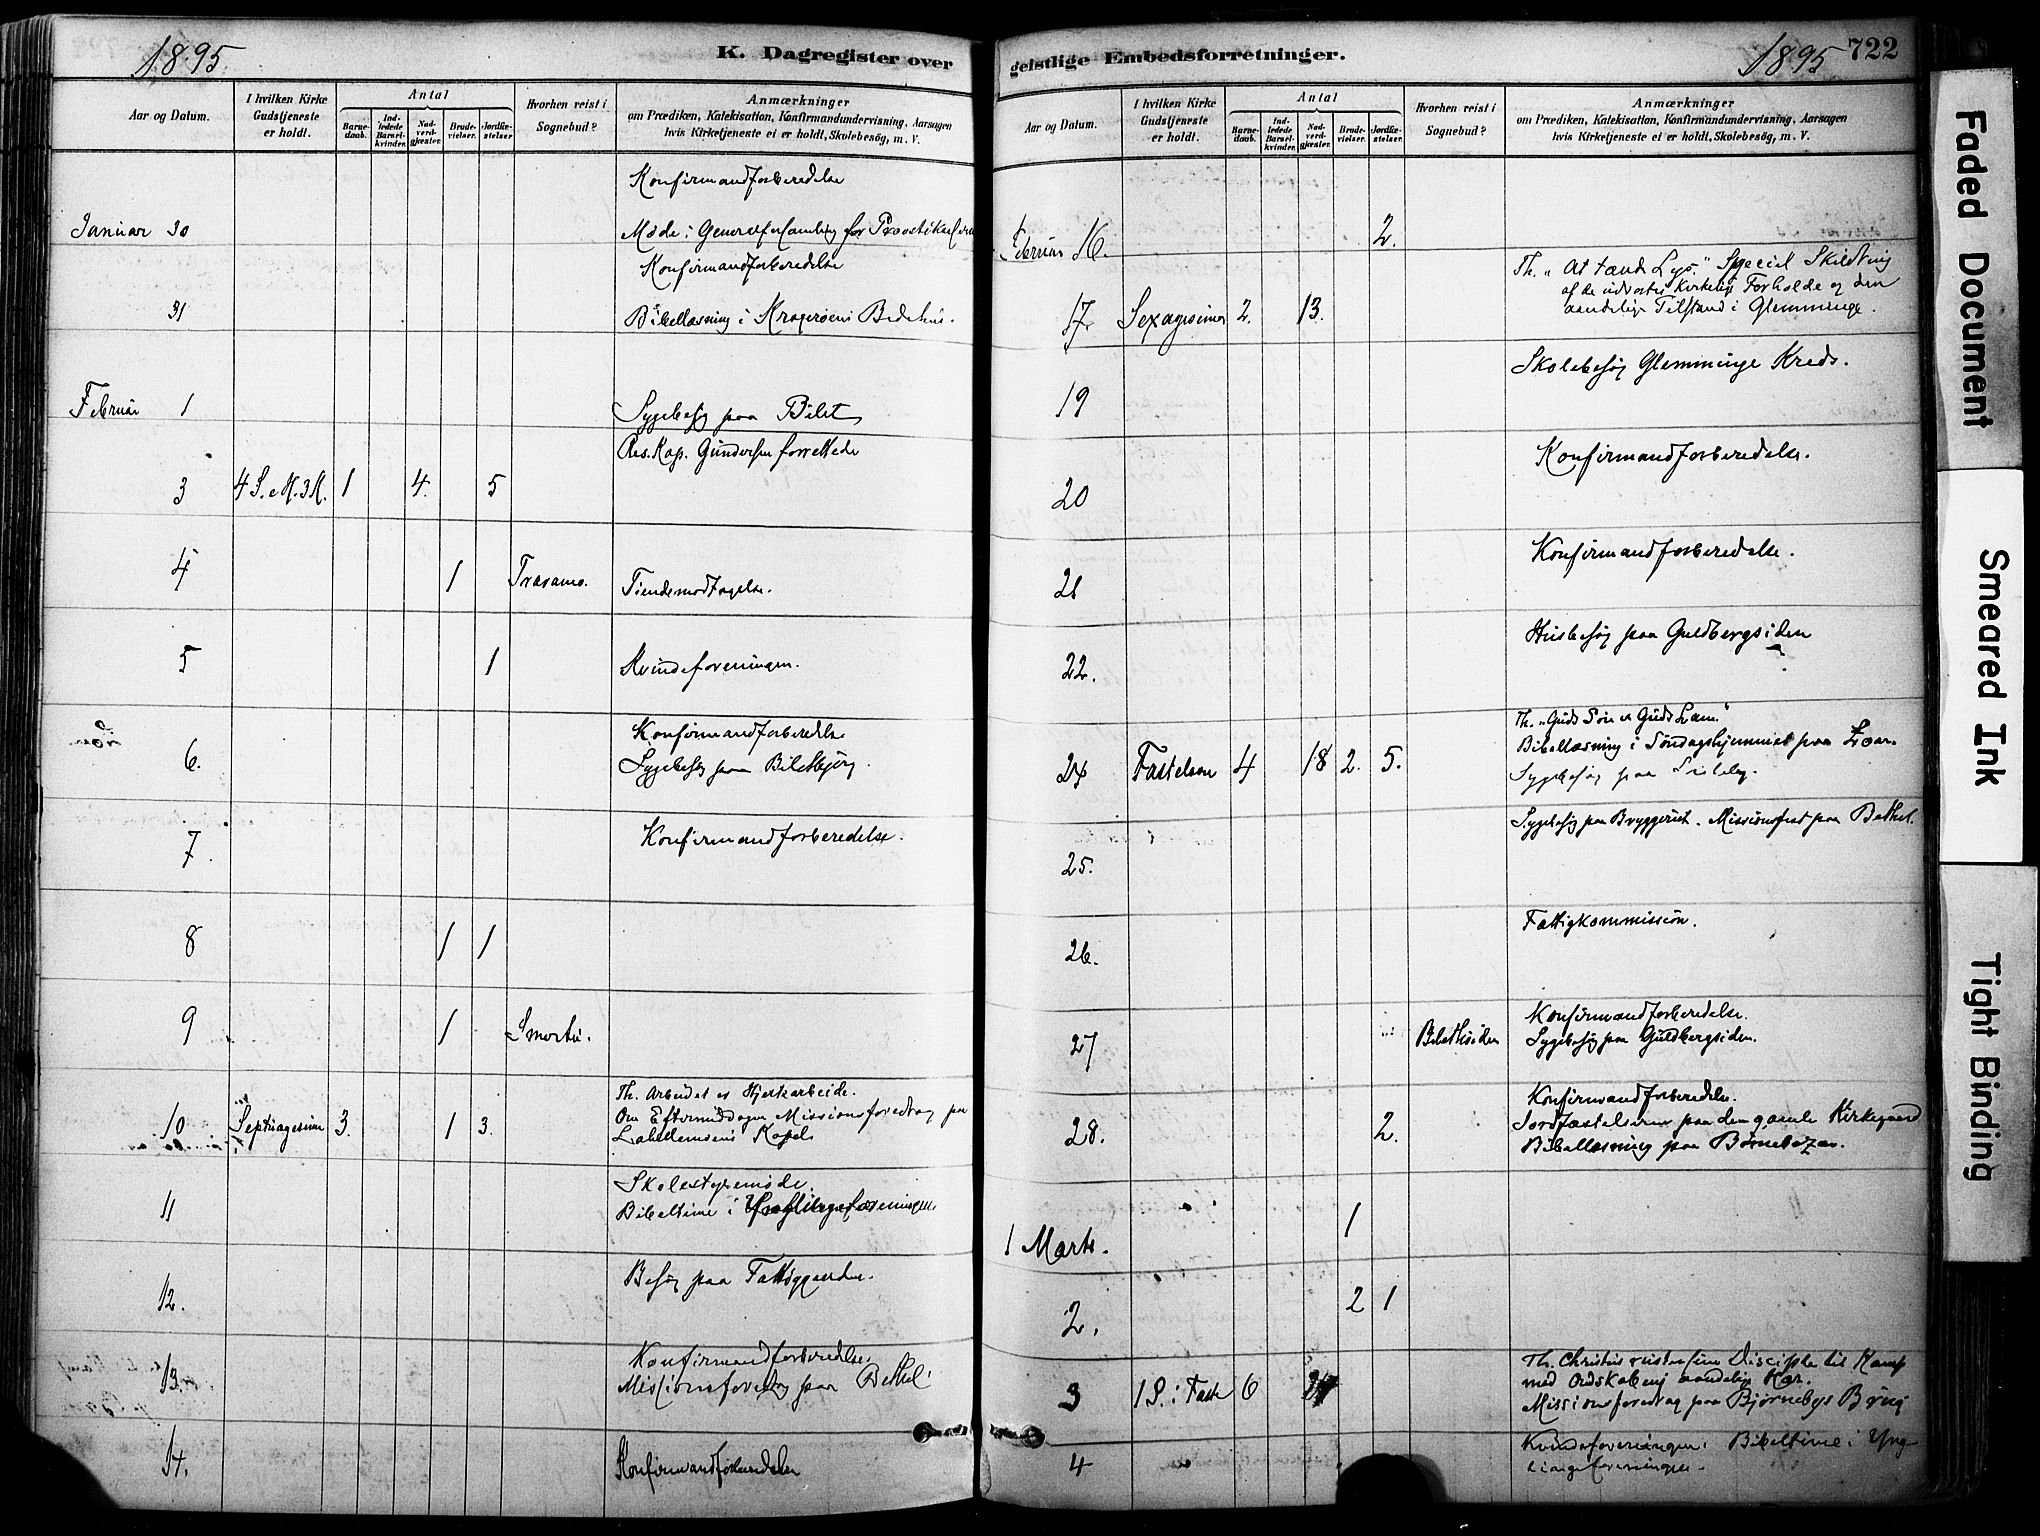 1895
K. Dagregister over
Aar og Datum.
I hvilken Kirke
Gudstjeneste
er holdt.
Antal
Barne-
daab.
Ind-
ledede
Barsel-
kvinder.
Nad-
verd-
gjæster.
Brude-
vielser.
Jordfæ-
stelser.
Hvorhen reist i
Sognebud?
Anmærkninger
om Prædiken, Katekisation, Konfirmandundervisning, Aarsagen
hvis Kirketjeneste ei er holdt, Skolebesøg, m. V.
Konfirmandforberedelse
Januar 30 Møde i Generalforsamling for
Konfirmandforberedelse
31 Bibellæsning i Kragerøens Bedehus.
Februar 1 Sygebesøg paa Bilet
Res. Kap. Gundersen forrettede
3 4 S. e. H. 3 K. 1 4. 5
4 1 Trasamo. Tiendemodtagelse.
5 1 Kvindeforeningen.
Konfirmandforberedelse
6. Sygebesøg paa
7. Konfirmandforberedelse.
8 1 1
9 1 Smertu.
Th. Arbeidet er Hjertearbeide.
10 Septuagesima 3. 1 3. Om Eftermiddagen Missionsforedrag paa
Kapel
Skolestyremøde.
11 Bibeltime i Ynglingeforeningen
12. Besøg paa Fattiggaarden.
Konfirmandforberedelse.
13. Missionsforedrag paa Bethel.
14. Konfirmandforberedelse
geistlige Embedsforretninger.
1895 722
Aar og Datum.
I hvilken Kirke
Gudstjeneste
er holdt.
Antal
Barne-
daab.
Ind-
ledede
Barsel-
kvinder.
Nad-
verd-
gjæster.
Brude-
vielser.
Jordfæ-
stelser.
Hvorhen reist i
Sognebud?
Anmærkninger
om Prædiken, Katekisation, Konfirmandundervisning, Aarsagen
hvis Kirketjeneste ei er holdt, Skolebesøg, m. V.
Februar 16. 2.
Th. "At tænde Lys." Speciel Skildring
af de udvortes kirkelige Forholde og den
17. Sexagesima 2. 13. aandelige Tilstand i Glemminge.
19 Skolebesøg Glemminge Kreds.
20 Konfirmandforberedelse.
21 Konfirmandforberedelse.
22. Husbesøg paa Guldbergsiden
Th. "Guds Søn er Guds Lam."
24 Fastelavn 4 18 2. 5. Bibellæsning i Søndagshjemmet paa Zoar.
Sygebesøg paa
25. Sygebesøg paa Bryggeriet. Missionsfest paa Bethel.
26. Fattigkommission.
Konfirmandforberedelse.
27 Sygebesøg paa Guldbergsiden.
Konfirmandforberedelse.
28. 2. Jordfæstelserne paa den gamle Kirkegaard
Bibellæsning paa
1 Marts. 1
2. 2 1
Th. Christus ruster sine Disciple til Kamp
med Ondskabens aandelige Hær.
3 1 S. i Faste 6 Missionsforedrag paa Bjørnebys Brug
4 Kvindeforeningen. Bibeltime i Yng-
lingeforeningen.
Faded Document
Smeared Ink
Tight Binding